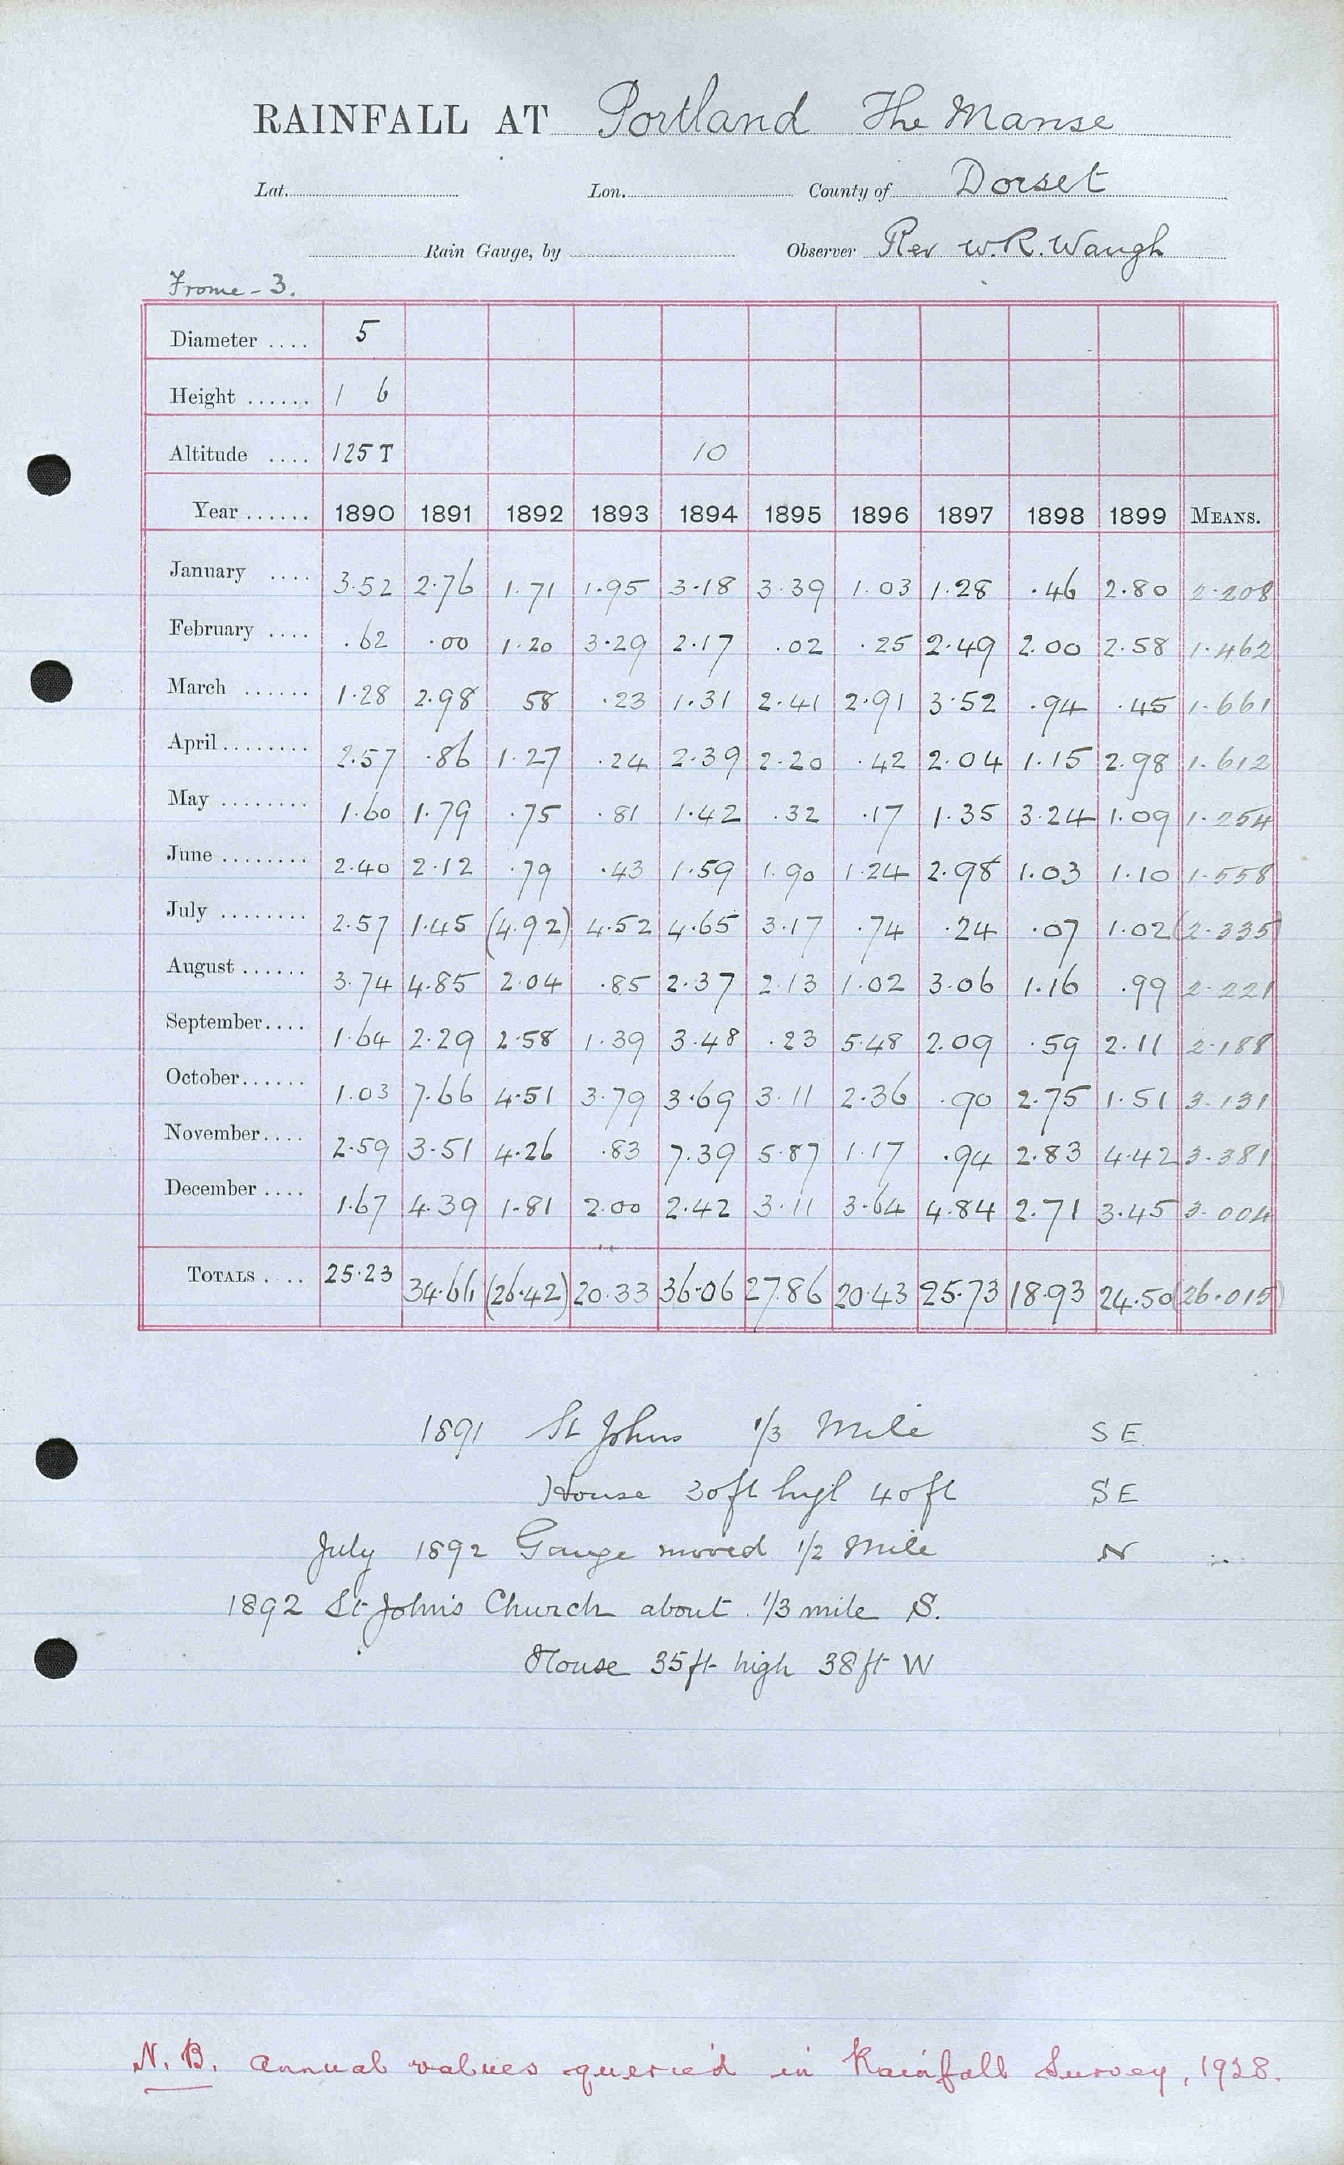 RAINFALL AT Portland The Manse
Lat. Lon. County of Dorset
Rain Gauge, by Observer Rev W.R. Waugh
Frome - 3.
Diameter .... 5
Height ...... 1 6
Altitude .... 125 T 10
Year ...... 1890 1891 1892 1893 1894 1895 1896 1897 1898 1899 MEANS.
January .... 3.52 2.76 1.71 1.95 3.18 3.39 1.03 1.28 .46 2.80 2.208
February .... .62 .00 1.20 3.29 2.17 .02 .25 2.49 2.00 2.58 1.462
March ...... 1.28 2.98 58 .23 1.31 2.41 2.91 3.52 .94 .45 1.661
April ........ 2.57 .86 1.27 .24 2.39 2.20 .42 2.04 1.15 2.98 1.612
May ........ 1.60 1.79 .75 .81 1.42 .32 .17 1.35 3.24 1.09 1.254
June ........ 2.40 2.12 .79 .43 1.59 1.90 1.24 2.98 1.03 1.10 1.558
July ........ 2.57 1.45 (4.92) 4.52 4.65 3.17 .74 .24 .07 1.02 (2.335)
August ...... 3.74 4.85 2.04 .85 2.37 2.13 1.02 3.06 1.16 .99 2.221
September .... 1.64 2.29 2.58 1.39 3.48 .23 5.48 2.09 .59 2.11 2.188
October ...... 1.03 7.66 4.51 3.79 3.69 3.11 2.36 .90 2.75 1.51 3.131
November .... 2.59 3.51 4.26 .83 7.39 5.87 1.17 .94 2.83 4.42 3.381
December .... 1.67 4.39 1.81 2.00 2.42 3.11 3.64 4.84 2.71 3.45 3.004
TOTALS .... 25.23 34.66 (26.42) 20.33 36.06 27.86 20.43 25.73 18.93 24.50 (26.015)
1891 St Johns 1/3 Mile SE
House 30ft high 40ft SE
July 1892 Gauge moved 1/2 Mile N
1892 St John's Church about 1/3 mile S.
House 35ft high 38ft W
N.B. Annual values queried in Rainfall Survey, 1928.